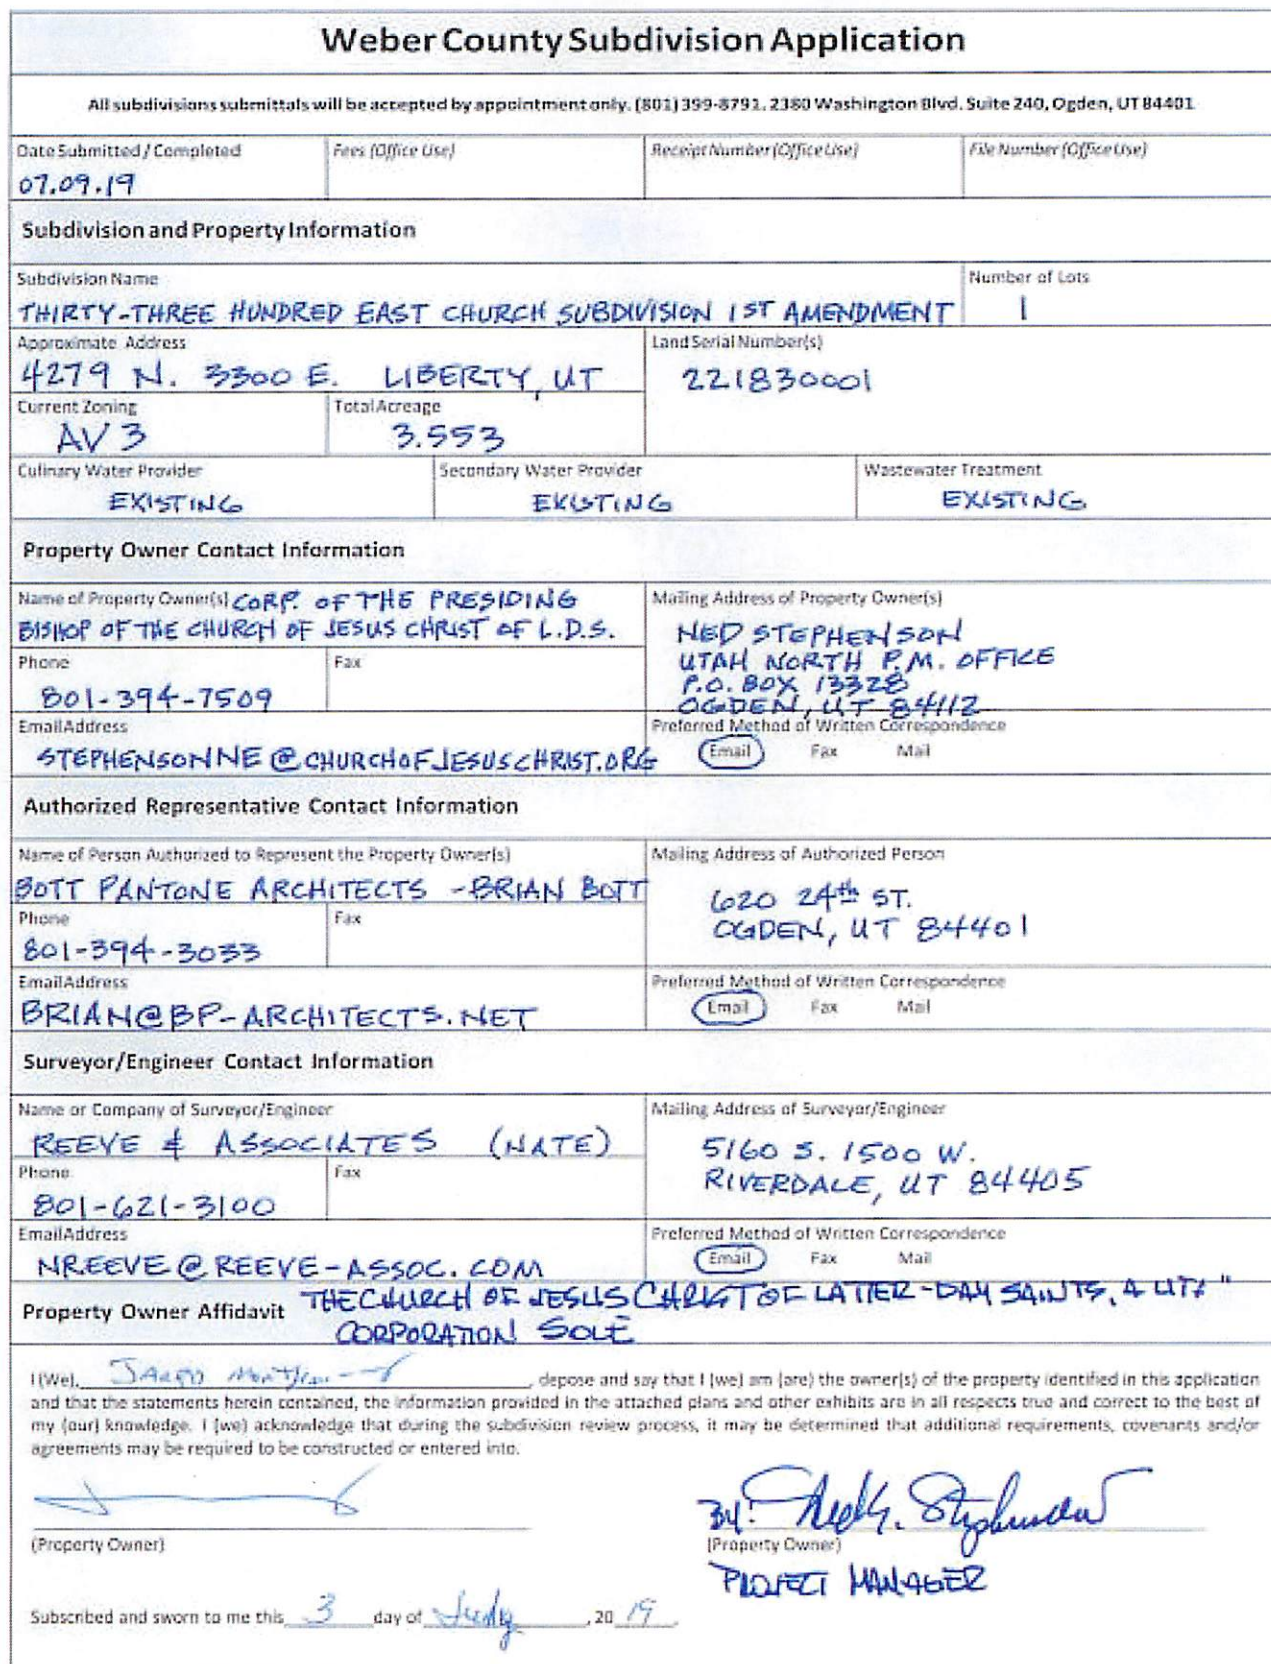 Weber County Subdivision Application
All subdivisions submittals will be accepted by appointment only. (801) 399-8791. 2380 Washington Blvd. Suite 240, Ogden, UT 84401
Date Submitted / Completed Fees (Office Use) Receipt Number (Office Use) File Number (Office Use)
07.09.19
Subdivision and Property Information
Subdivision Name Number of Lots
THIRTY-THREE HUNDRED EAST CHURCH SUBDIVISION 1ST AMENDMENT 1
Approximate Address Land Serial Number(s)
4279 N. 3300 E. LIBERTY, UT 221830001
Current Zoning Total Acreage
AV 3 3.553
Culinary Water Provider Secondary Water Provider Wastewater Treatment
EXISTING EXISTING EXISTING
Property Owner Contact Information
Name of Property Owner(s) CORP. OF THE PRESIDING
BISHOP OF THE CHURCH OF JESUS CHRIST OF L.D.S.
Mailing Address of Property Owner(s)
NED STEPHENSON
UTAH NORTH P.M. OFFICE
P.O. BOX 13328
OGDEN, UT 84112
Phone Fax
801-394-7509
Email Address
STEPHENSONNE@CHURCHOFJESUSCHRIST.ORG
Preferred Method of Written Correspondence
Email Fax Mail
Authorized Representative Contact Information
Name of Person Authorized to Represent the Property Owner(s)
BOTT PANTONE ARCHITECTS - BRIAN BOTT
Mailing Address of Authorized Person
620 24th ST.
OGDEN, UT 84401
Phone Fax
801-394-3033
Email Address
BRIAN@BP-ARCHITECTS.NET
Preferred Method of Written Correspondence
Email Fax Mail
Surveyor/Engineer Contact Information
Name or Company of Surveyor/Engineer
REEVE & ASSOCIATES (NATE)
Mailing Address of Surveyor/Engineer
5160 S. 1500 W.
RIVERDALE, UT 84405
Phone Fax
801-621-3100
Email Address
NREEVE@REEVE-ASSOC.COM
Preferred Method of Written Correspondence
Email Fax Mail
Property Owner Affidavit THE CHURCH OF JESUS CHRIST OF LATTER-DAY SAINTS, A
CORPORATION SOLE
I (We), depose and say that I (we) am (are) the owner(s) of the property identified in this application
and that the statements herein contained, the information provided in the attached plans and other exhibits are in all respects true and correct to the best of
my (our) knowledge. I (we) acknowledge that during the subdivision review process, it may be determined that additional requirements, covenants and/or
agreements may be required to be constructed or entered into.
BY: Stephenson
(Property Owner) (Property Owner)
PROJECT MANAGER
Subscribed and sworn to me this 3 day of July, 20 19,